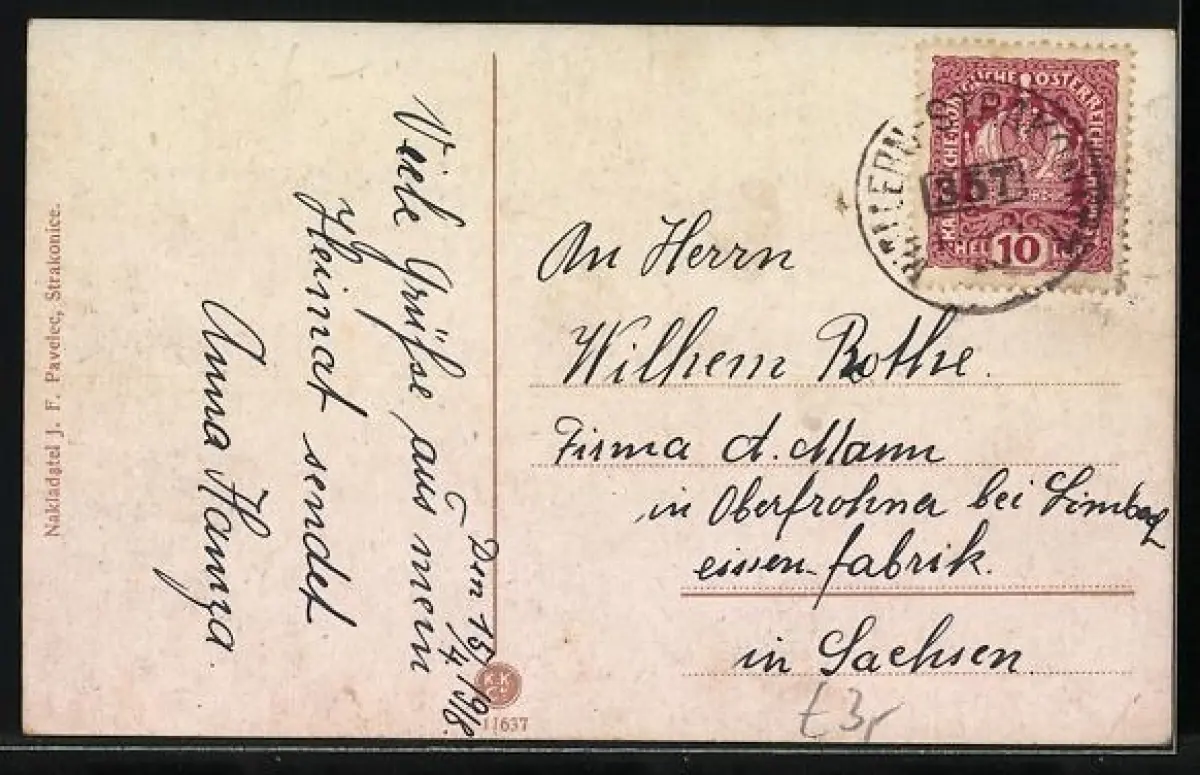 Nakladatel J. F. Pavelec, Strakonice.
Viele Grüße aus mein
Heimat sendet
Anna Hamza.
Den 15/4 1918.
K.K
11637
KAISERLICHE KÖNIGLICHE ÖSTERREICH
HEL 10
WALLERN-STRAKON
357
An Herrn
Wilhem Rothe.
Firma A. Mann
in Oberfrohner bei Limbag
eissen-fabrik.
in Sachsen
£3,-